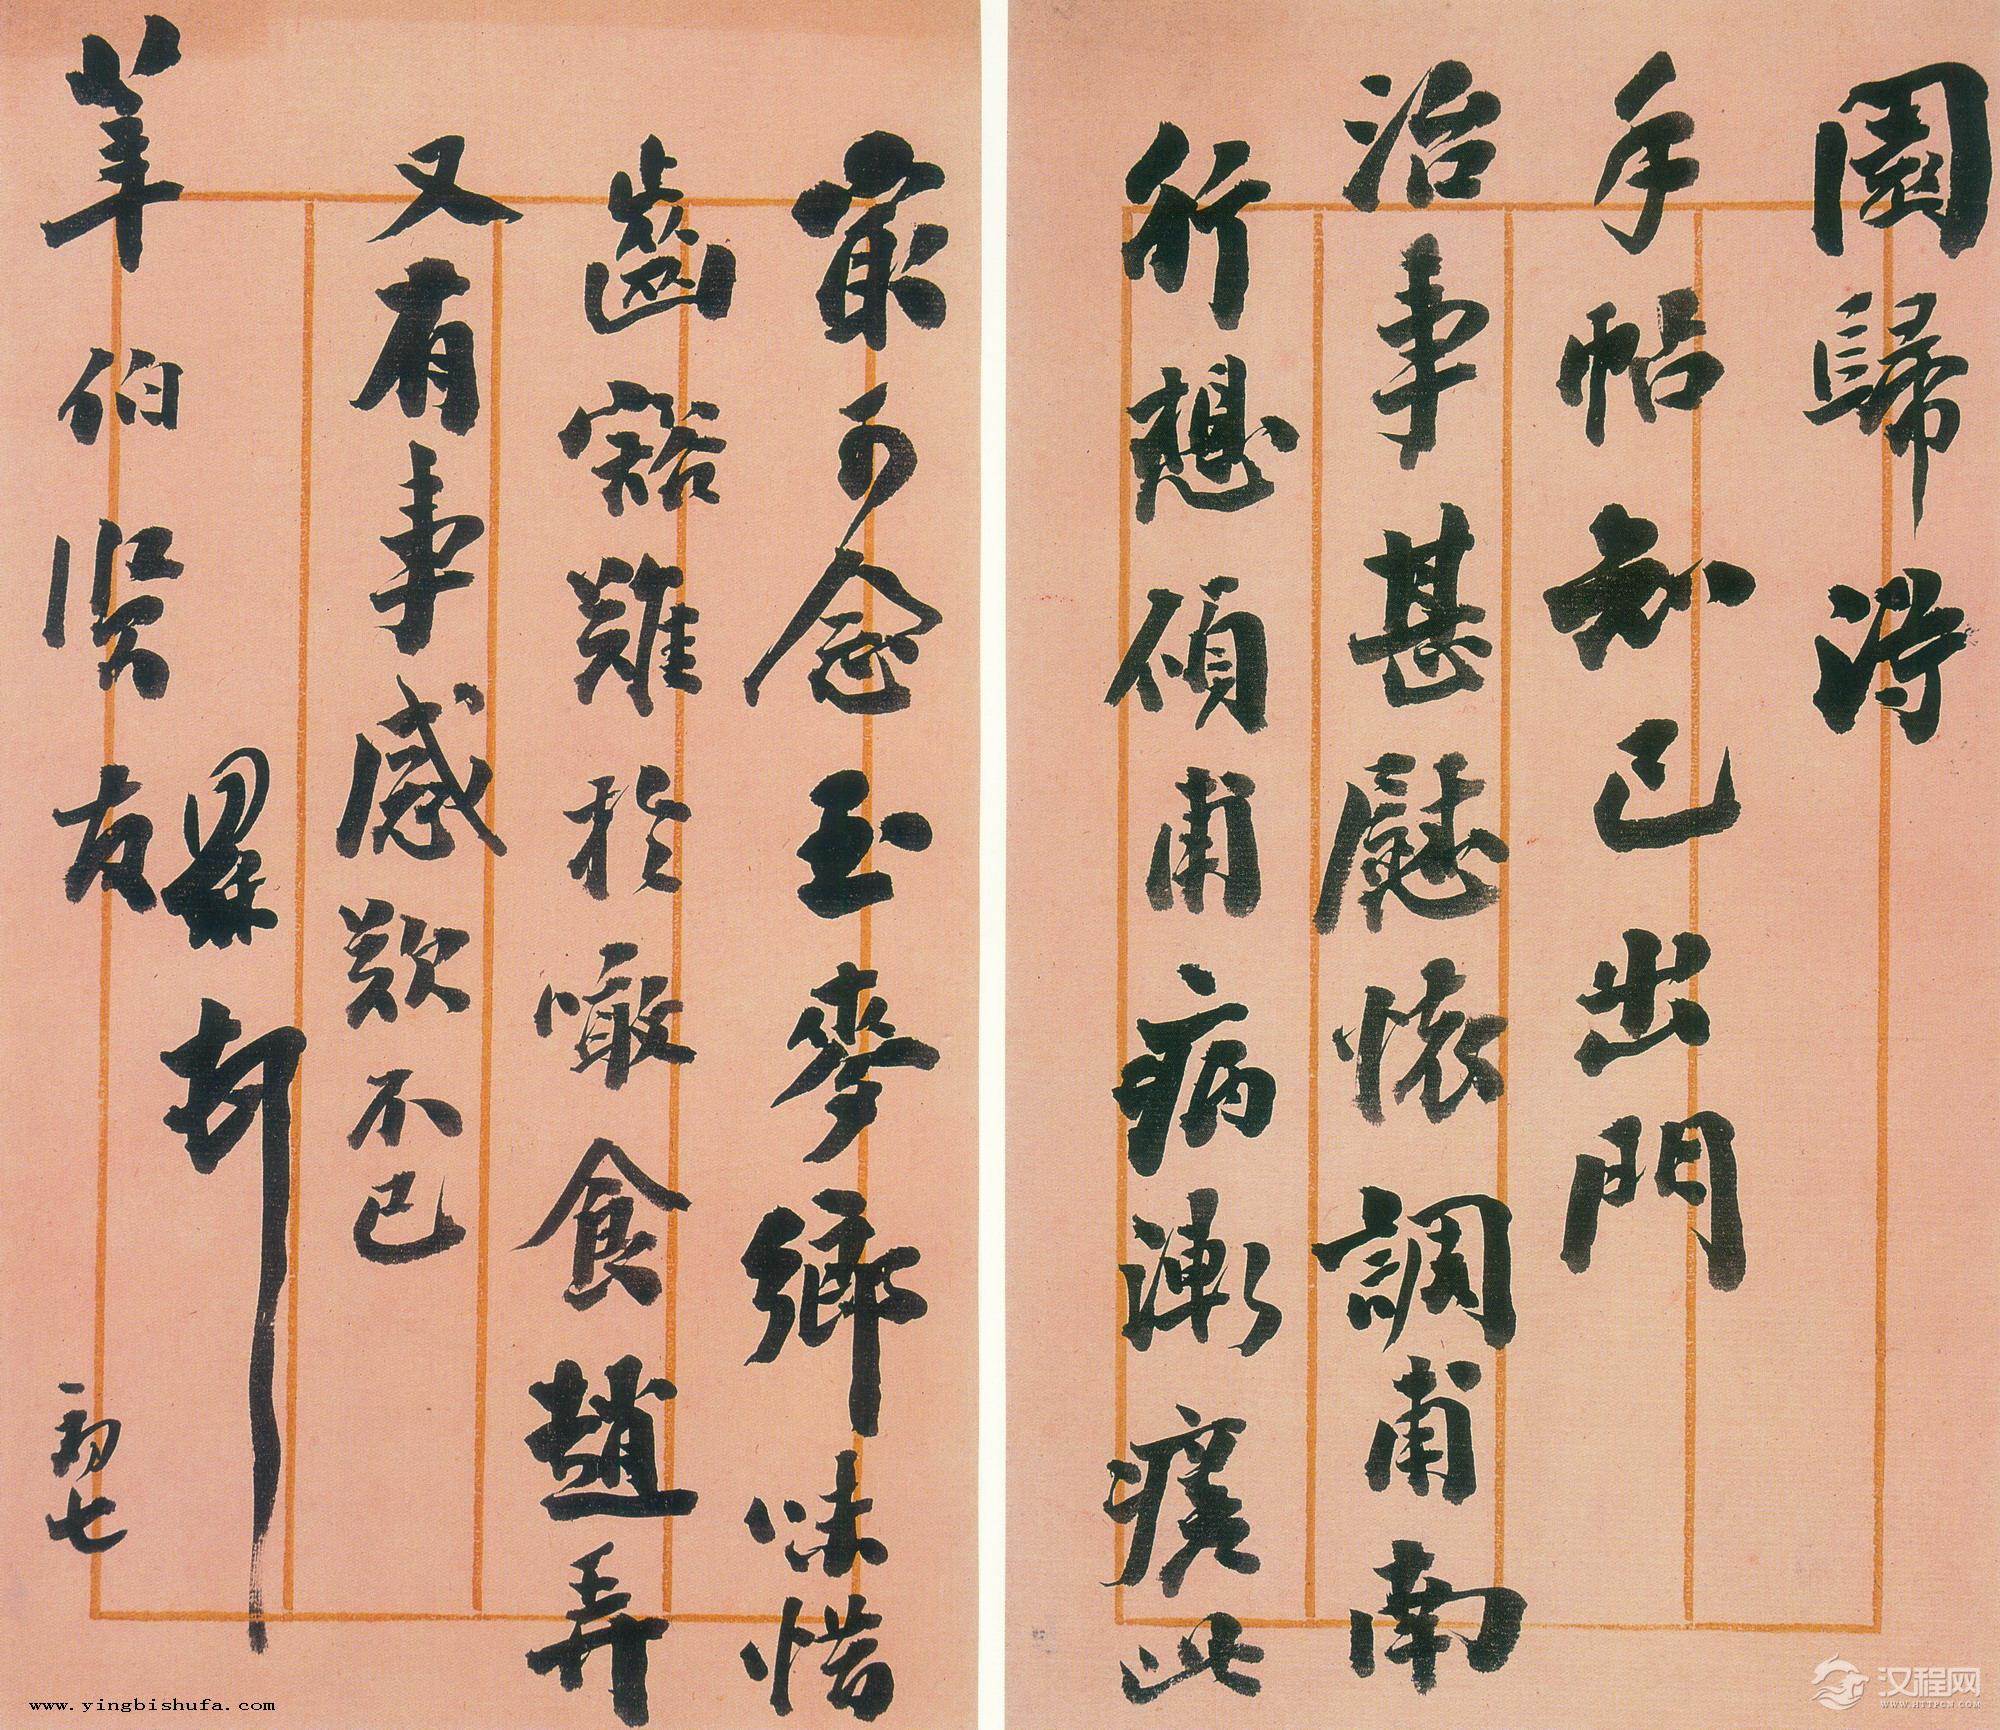 園歸得
手帖知已出門
治事甚慰懷調甫南
行想碩甫病漸瘥此
最可念玉麥鄉味惜
齒豁難於噉食趙弄
又有事感歎不已
莘伯賢友
頓首
初七
www.yingbishufa.com
汉程网
WWW.HTTPCN.COM